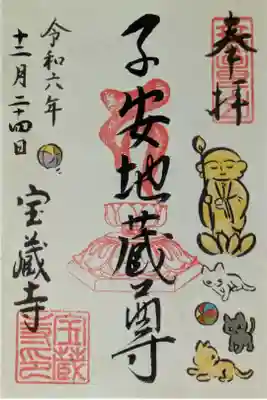 奉拝
子安地蔵尊
令和六年
十二月二十四日
宝蔵寺